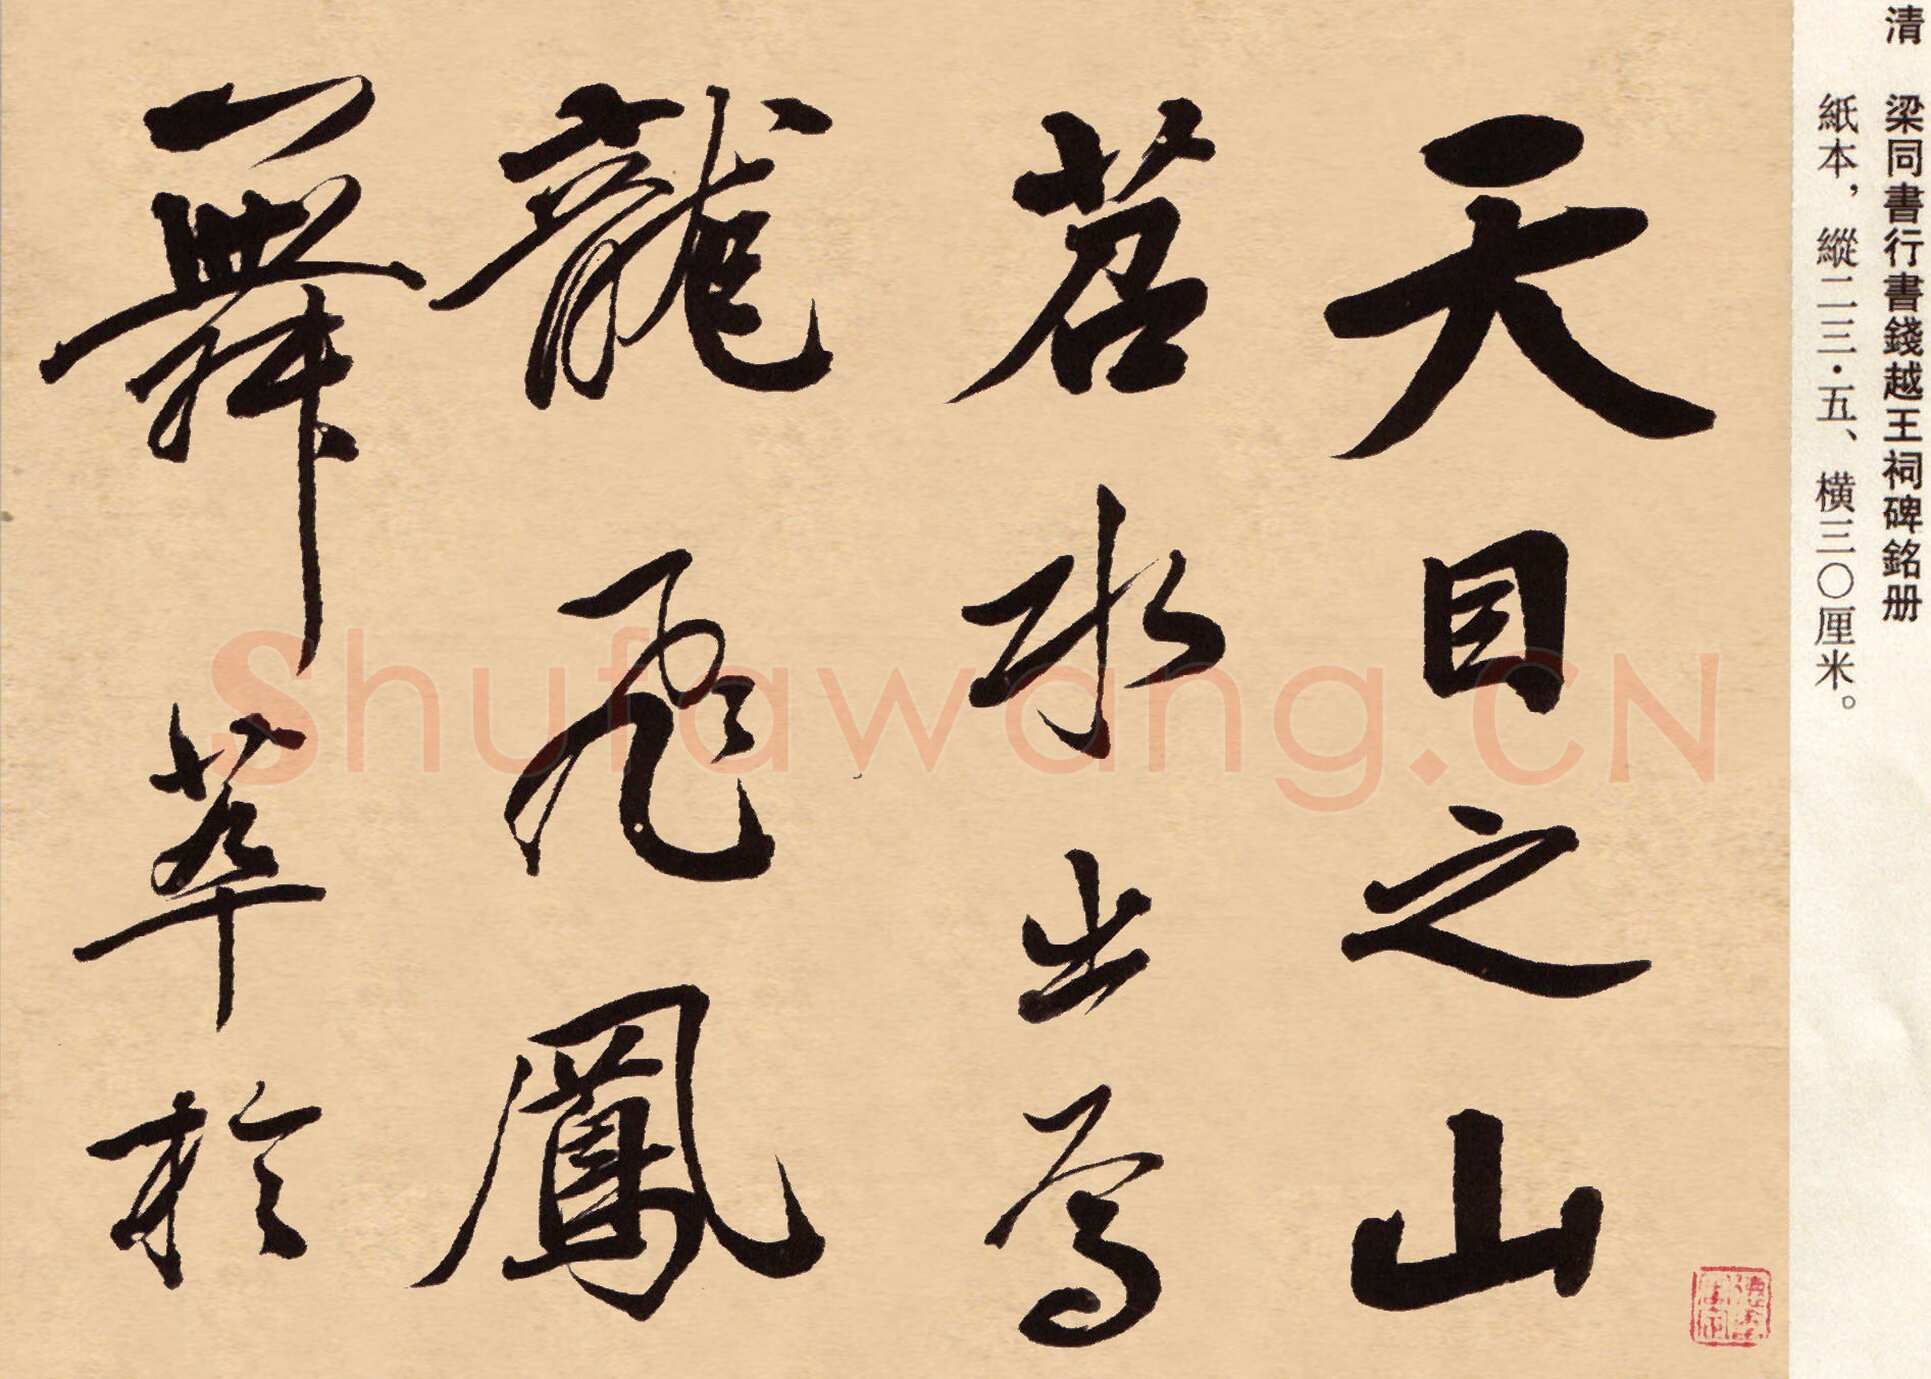 清 梁同書行書錢越王祠碑銘册
紙本，縱二三·五、橫三〇厘米。
天目之山
苕水出焉
龍飛鳳
舞萃於
Shufawang.CN